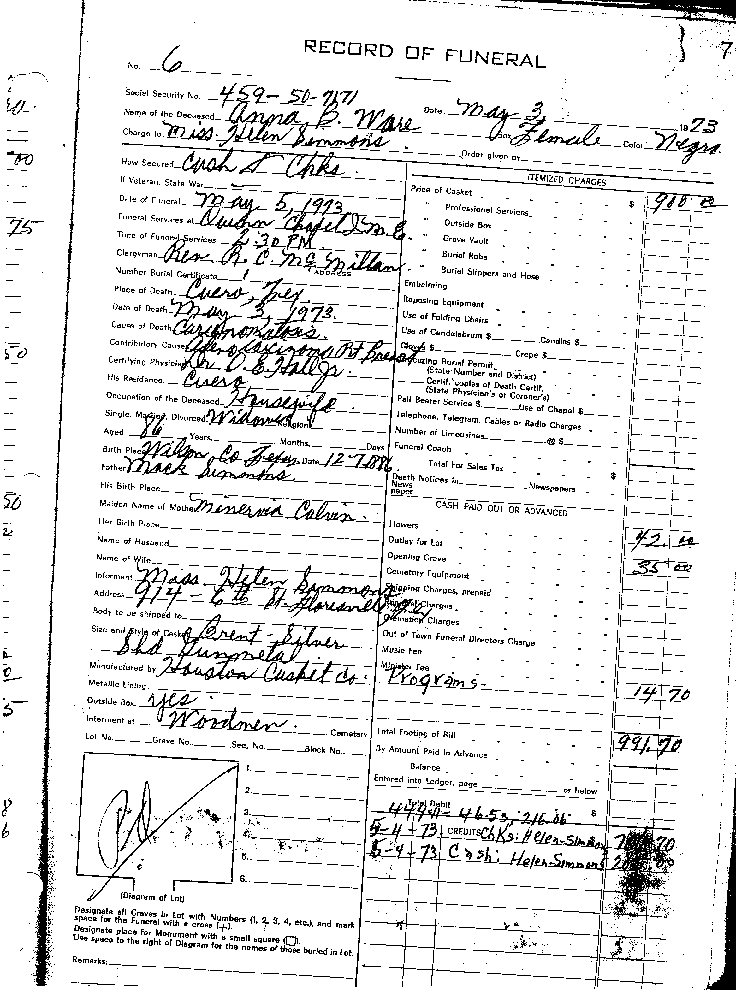 RECORD OF FUNERAL
No. 6
Social Security No. 459-50-7171
Date. May 3, 1973
Name of the Deceased Anna B. Ware
Sex Female Color Negro
Charge to Miss. Helen Simmons
Order given by
How Secured Cash & Chks.
If Veteran, State War
Date of Funeral May 5, 1973
Funeral Services at Quinn Chapel A.M.E.
Time of Funeral Services 2:30 PM
Clergyman Rev. R. C. McMillan
ADDRESS
Number Burial Certificate 1
Place of Death Cuero, Tex
Date of Death May 3, 1973.
Cause of Death Carcinomatosis
Contributory Cause Adenocarcinoma Rt Breast
Certifying Physician Dr. O. E. Hall Jr.
His Residence Cuero
Occupation of the Deceased Housewife
Single, Married, Divorced Widowed Religion
Aged 86 Years Months Days
Birth Place Wilson Co Texas Date 12-7-1886
Father Mack Simmons
His Birth Place
Maiden Name of Mother Minervia Colvin
Her Birth Place
Name of Husband
Name of Wife
Informant Miss. Helen Simmons
Address 914 - 6th St. Floresville
Body to be shipped to
Size and Style of Casket Brent - Silver
Shd Gunmetal
Manufactured by Houston Casket Co.
Metallic Lining
Outside Box yes
Interment at Woodmen Cemetery
Lot No. Grave No. Sec. No. Block No.
1.
2.
3.
4.
5.
6.
Pd
(Diagram of Lot)
Designate all Graves in Lot with Numbers (1, 2, 3, 4, etc.), and mark
space for the Funeral with a cross (+).
Designate place for Monument with a small square (□).
Use space to the right of Diagram for the names of those buried in Lot.
Remarks:
ITEMIZED CHARGES
Price of Casket $ 900 00
" Professional Services
" Outside Box
" Grave Vault
" Burial Robe
" Burial Slippers and Hose
Embalming
Reposing Equipment
Use of Folding Chairs
Use of Candelabrum $ Candles $
Gloves $ Crepe $
Burial Permit
(State Number and District)
Certif. copies of Death Certif.
(State Physician's or Coroner's)
Pall Bearer Service $ Use of Chapel $
Telephone, Telegram, Cables or Radio Charges
Number of Limousines @ $
Funeral Coach
Total For Sales Tax $
Death Notices in Newspapers
News
paper
CASH PAID OUT OR ADVANCED
Flowers
Outlay for Lot 42.00
Opening Grave 35 00
Cemetery Equipment
Shipping Charges, prepaid
Cremation Charges
Out of Town Funeral Directors Charge
Music Fee
Minister Fee
Programs 14 70
Total Footing of Bill 991.70
By Amount Paid in Advance
Balance
Entered into Ledger, page or below
Total Debit $
46.53, 216.06
5-4-73 CREDITS Chks: Helen Simmons
5-4-73 Cash: Helen Simmons